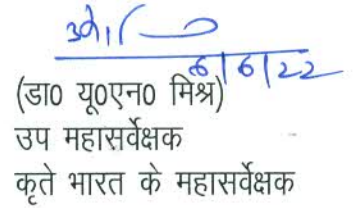 6/6/22
(डा0 यू0एन0 मिश्र)
उप महासर्वेक्षक
कृते भारत के महासर्वेक्षक